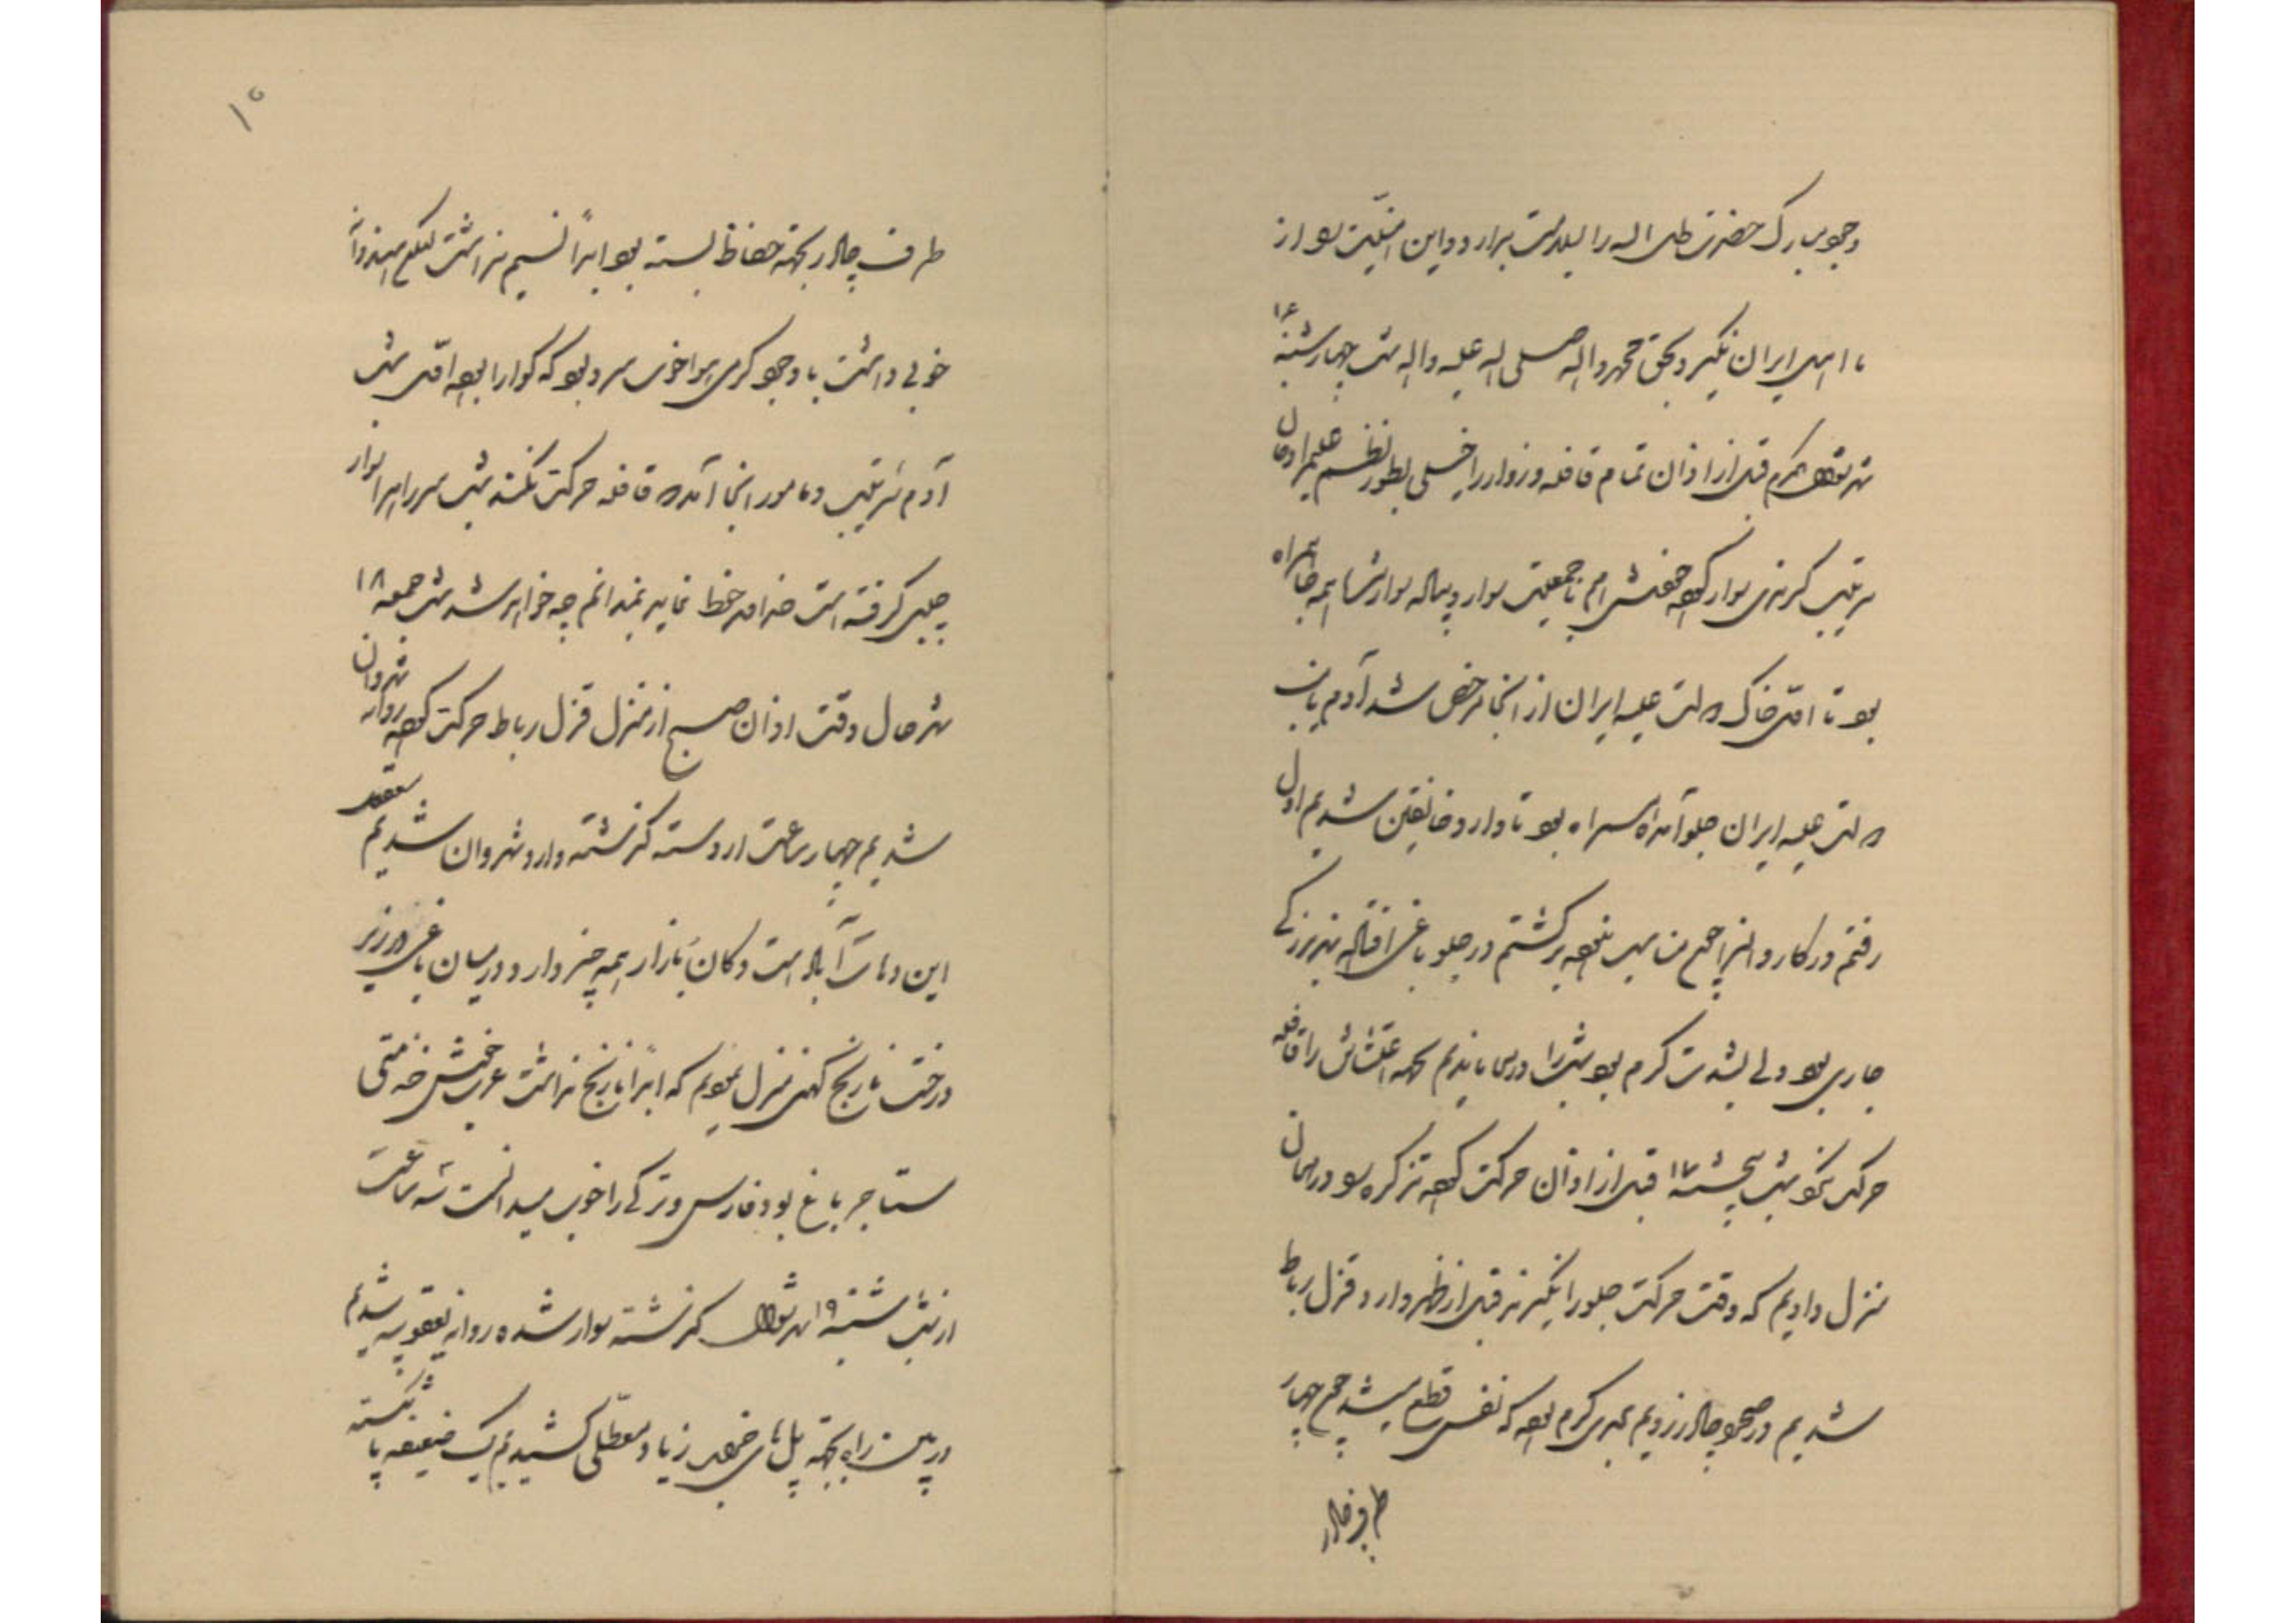 وجود مبارک حضرت ظل الله را بسلامت بدارد و این امنیّت را از
ما اهل ایران نگیرد بحق محمد و اله صلی اله علیه و اله شب چهارشنبه ۱۶
شهر شوال المکرم قبل از اذان تمام قافله و زوار را خیلی بطور نظم علیمرادخان
سرتیپ کرندی سوار کرده خودش هم با جمعیت سوار و پیاده سوار شد همه جا همراه
بود تا اوّل خاک دولت علیه ایران از آنجا مرخص شد آدم پاشای
دولت علیه ایران جلو آمده همراه بود تا وارد خانقین شدیم اول
رفتم در کاروانسرا هیچ من میل نکرده برگشتم در جلو باغی افتاده نهر بزرگی
جاری بود ولی بشدت گرم بود شب را در همانجا ماندیم بجهة اغتشاش راه قافله
حرکت نکرد شب پنجشنبه ۱۷ قبل از اذان حرکت کرده تذکره را در همان
منزل دادیم که وقت حرکت جلو را نگیرند قبل از ظهر وارد قزل رباط
شدیم در صحرا چادر زدیم بقدری گرم بود که نفس قطع میشد هیچ چهار
طرف چادر
۱۰
طرف چادر بجهة حفاظ بسته بود ابداً نسیم نداشت لیکن هندوانه
خوبی داشت با وجود گرمی هوا خوب سرد بود که گوارا بود اوّل شب
آدم سرتیپ و مأمور اینجا آمده که قافله حرکت نکند شب سر راه را سوار
چپی گرفته است خداوند حفظ نماید نمیدانم چه خواهد شد شب جمعه ۱۸
شهر حال وقت اذان صبح از منزل قزل رباط حرکت کرده روانه شهروان
شدیم چهار ساعت از دسته گذشته وارد شهروان شدیم
این دهات آباد است دکان بازار همه چیز دارد در میان باغی در زیر
درخت نارنج کهنی منزل نمودیم که ابداً نارنج نداشت عرب خوش خدمتی
مستأجر باغ بود فارسی و ترکی را خوب میدانست سه ساعت
از شب شنبه ۱۹ شهر شوال گذشته سوار شده روانه یعقوبیه شدیم
در بین راه بجهة پل های خراب زیاد معطلی کشیدیم یک ضعیفه پا شکسته